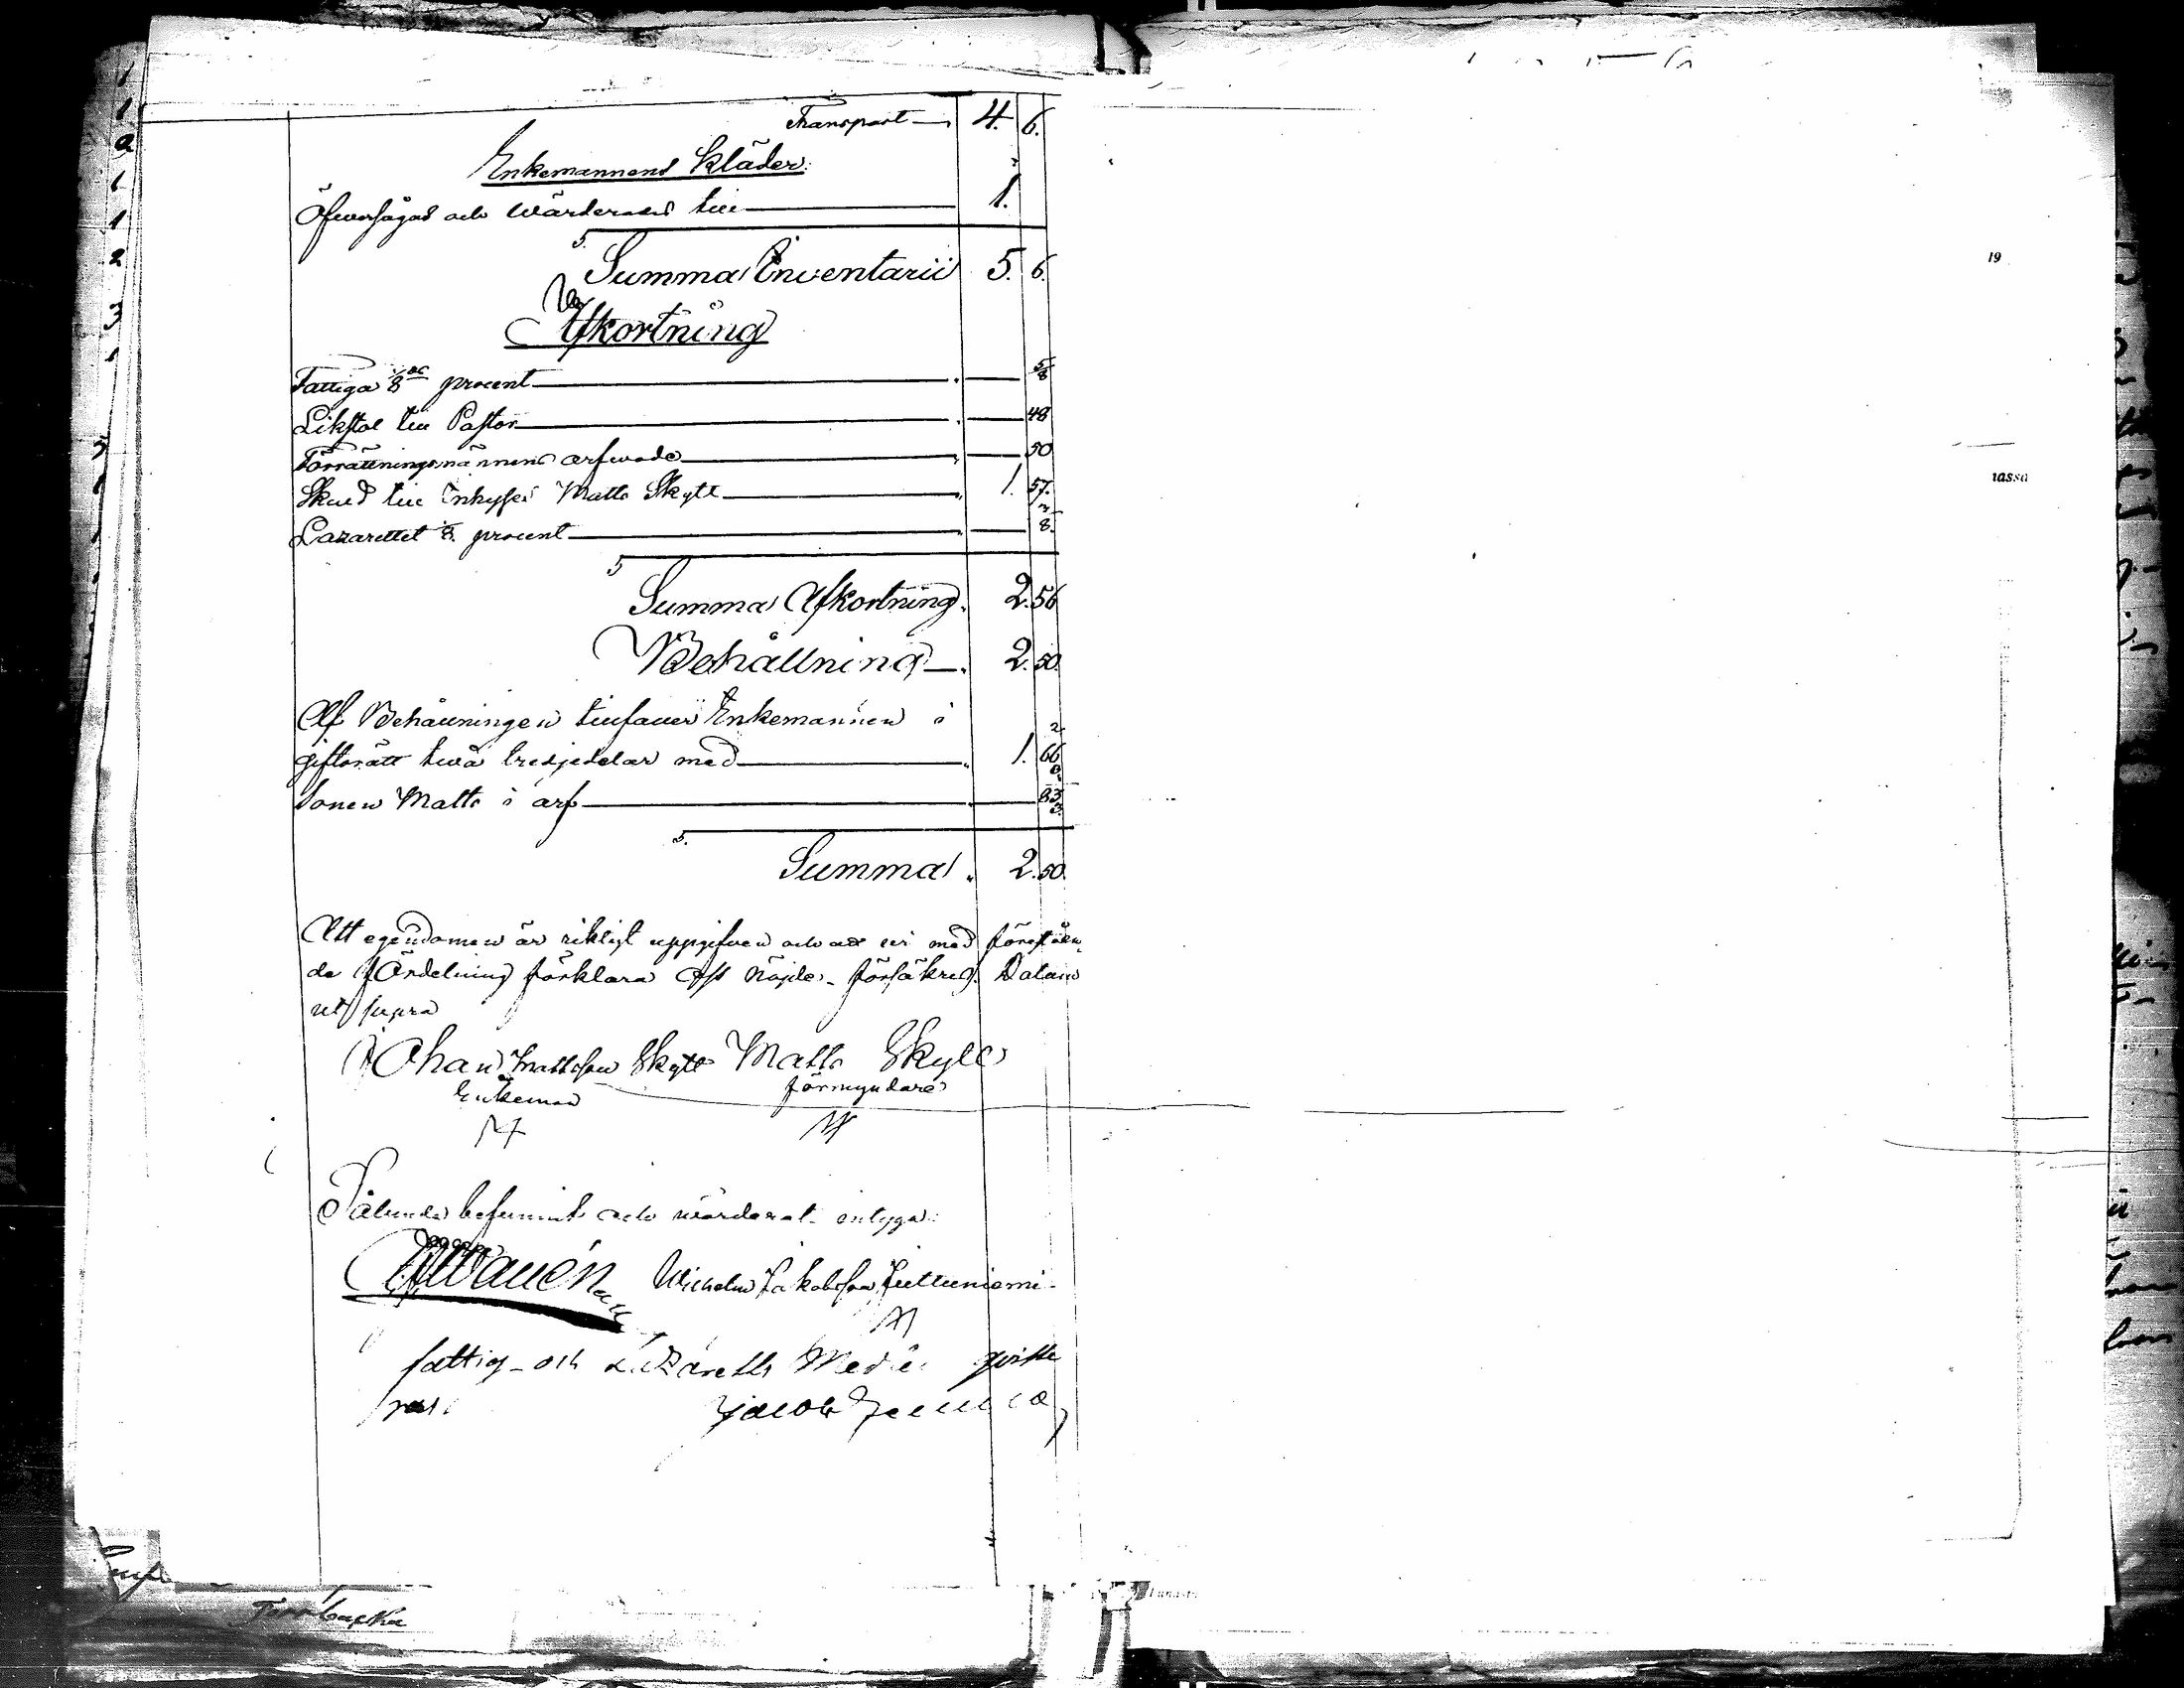 Transport 4. 6.
Enkemannens kläder:
Öfwersågas och wärderades till 1.
S. Summa Inventarii 5. 6.
Afkortning
Fattiga 1/8 procent 5/8
Likstol till Pastor 48
Förrättningsmännens arfwode 50
Skuld till Inhyses Matts Skytt 1. 57.
Lazarettet 1/8 procent
S Summa Afkortning. 2. 56
Behållning 2. 50.
Af Behållningen tillfaller Enkemannen i
giftorätt twå tredjedelar med 1. 66
Sonen Matts i arf 83
S. Summa 2. 50.
Att egendomen är riktigt uppgifwen och att wi med förestående
Ärdelning förklara oss nöjde, försäkras. Datum
ut supra
Johan Mattsson Skytt Matts Skytt
Enkeman förmyndare
Sålunda befunnit och wärderat intyga:
Wilhelm Jakobsson Juttuniemi
fattig- och Lazaretts Medel qvitte
ras Jacob
19